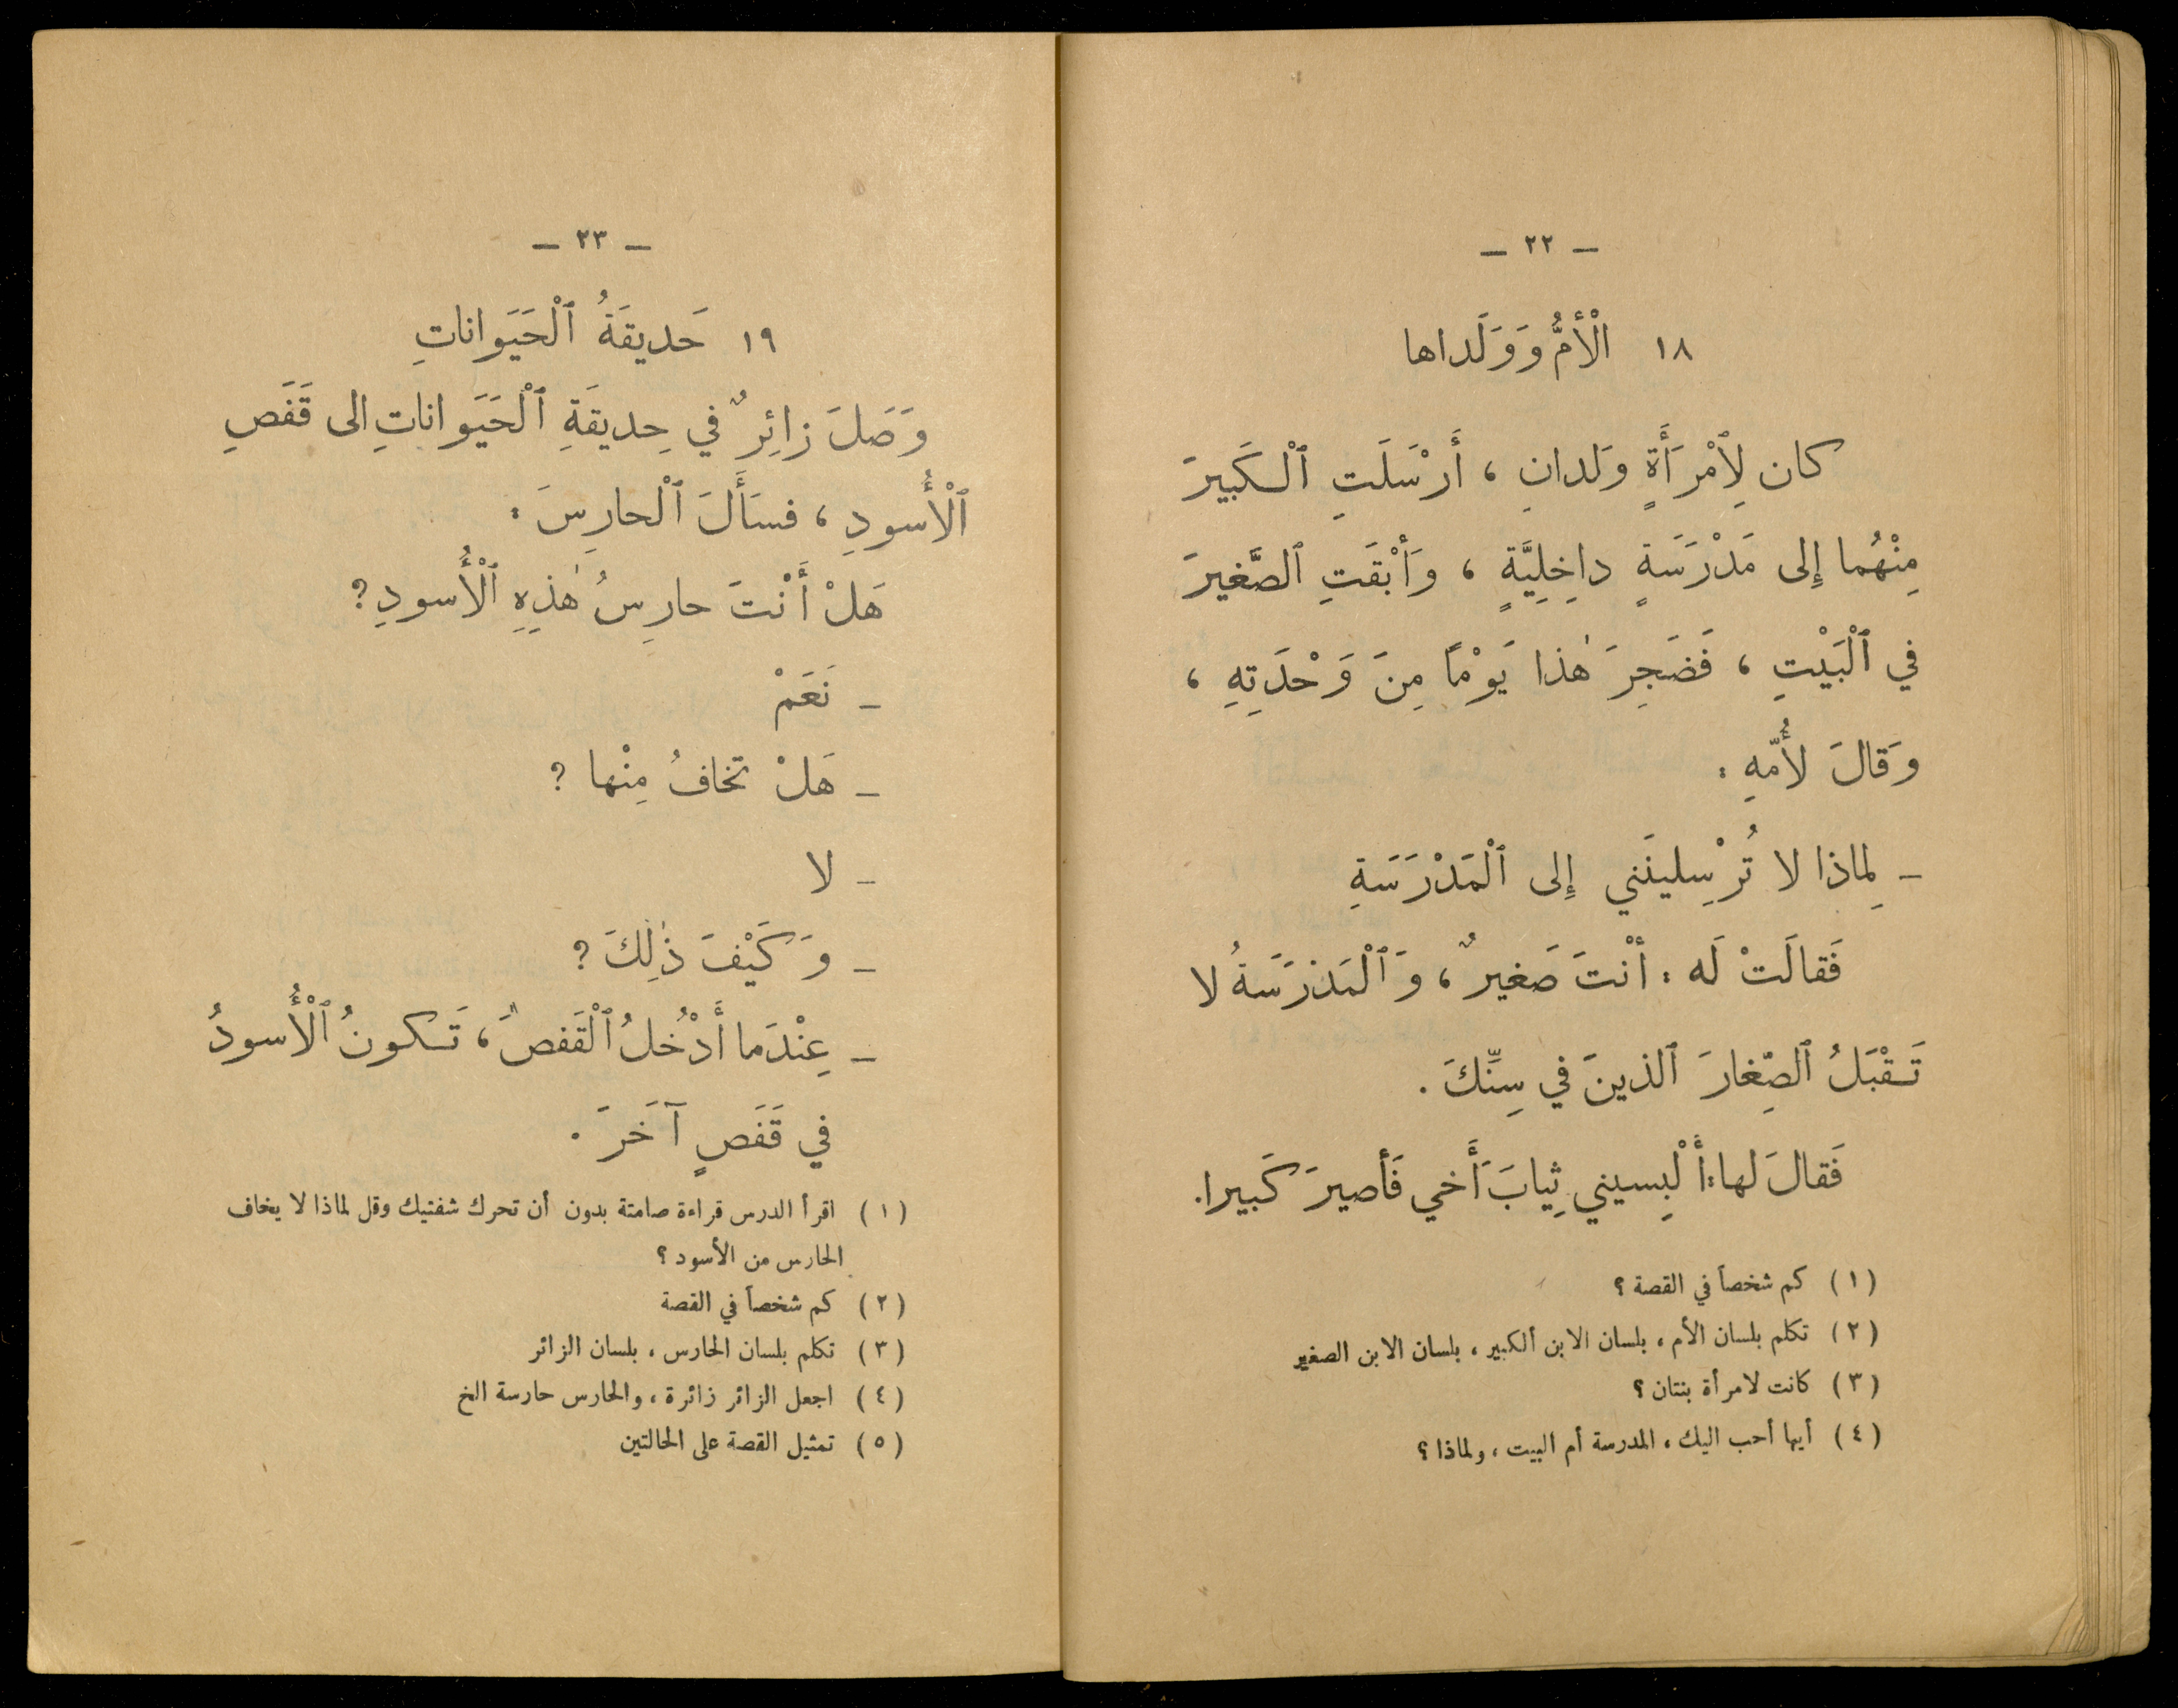 — ٢٢ —
١٨ الْأُمُّ وَوَلَداها
كان لِٱمْرَأَةٍ وَلدانِ ، أَرْسَلَتِ ٱلْكَبيرَ
مِنْهُما إِلى مَدْرَسَةٍ داخِلِيَّةٍ ، وَأَبْقَتِ ٱلصَّغيرَ
في ٱلْبَيْتِ ، فَضَجِرَ هٰذا يَوْمًا مِنَ وَحْدَتِهِ ،
وَقالَ لأُمّهِ :
– لِماذا لا تُرْسِلينَني إِلى ٱلْمَدْرَسَةِ
فَقالَتْ لَه : أنْتَ صَغيرٌ ، وَٱلْمَدْرَسَةُ لا
تَقْبَلُ ٱلصِّغارَ ٱلذينَ في سِنِّكَ .
فَقالَ لها : أَلْبِسيني ثِيابَ أَخي فَأَصيرَ كَبيرا .
( ١ ) كم شخصاً في القصة ؟
( ٢ ) تكلم بلسان الأم ، بلسان الابن ألكبير ، بلسان الابن الصغير
( ٣ ) كانت لامرأة بنتان ؟
( ٤ ) أيها أحب اليك ، المدرسة أم البيت ، ولماذا ؟
— ٢٣ —
١٩ حَديقَةُ ٱلْحَيَوانَاتِ
وَصَلَ زائِرٌ في حِديقَةِ ٱلْحَيَوانَاتِ الى قَفَصِ
ٱلْأُسودِ ، فسَأَلَ ٱلْحارِسَ :
هَلْ أَنْتَ حارِسُ هٰذِهِ ٱلْأُسودِ ؟
– نَعَمْ
– هَلْ تخافُ مِنْها ؟
– لا
– وَكَيْفَ ذٰلِكَ ؟
– عِنْدَما أَدْخُلُ ٱلْقَفَصَ ، تَكونُ ٱلْأُسودُ
في قَفَصٍ آخَرَ .
( ١ ) اقرأ الدرس قراءة صامتة بدون أن تحرك شفتيك وقل لماذا لا يخاف
الحارس من الأسود ؟
( ٢ ) كم شخصاً في القصة
( ٣ ) تكلم بلسان الحارس ، بلسان الزائر
( ٤ ) اجعل الزائر زائرة ، والحارس حارسة الخ
( ٥ ) تمثيل القصة على الحالتين